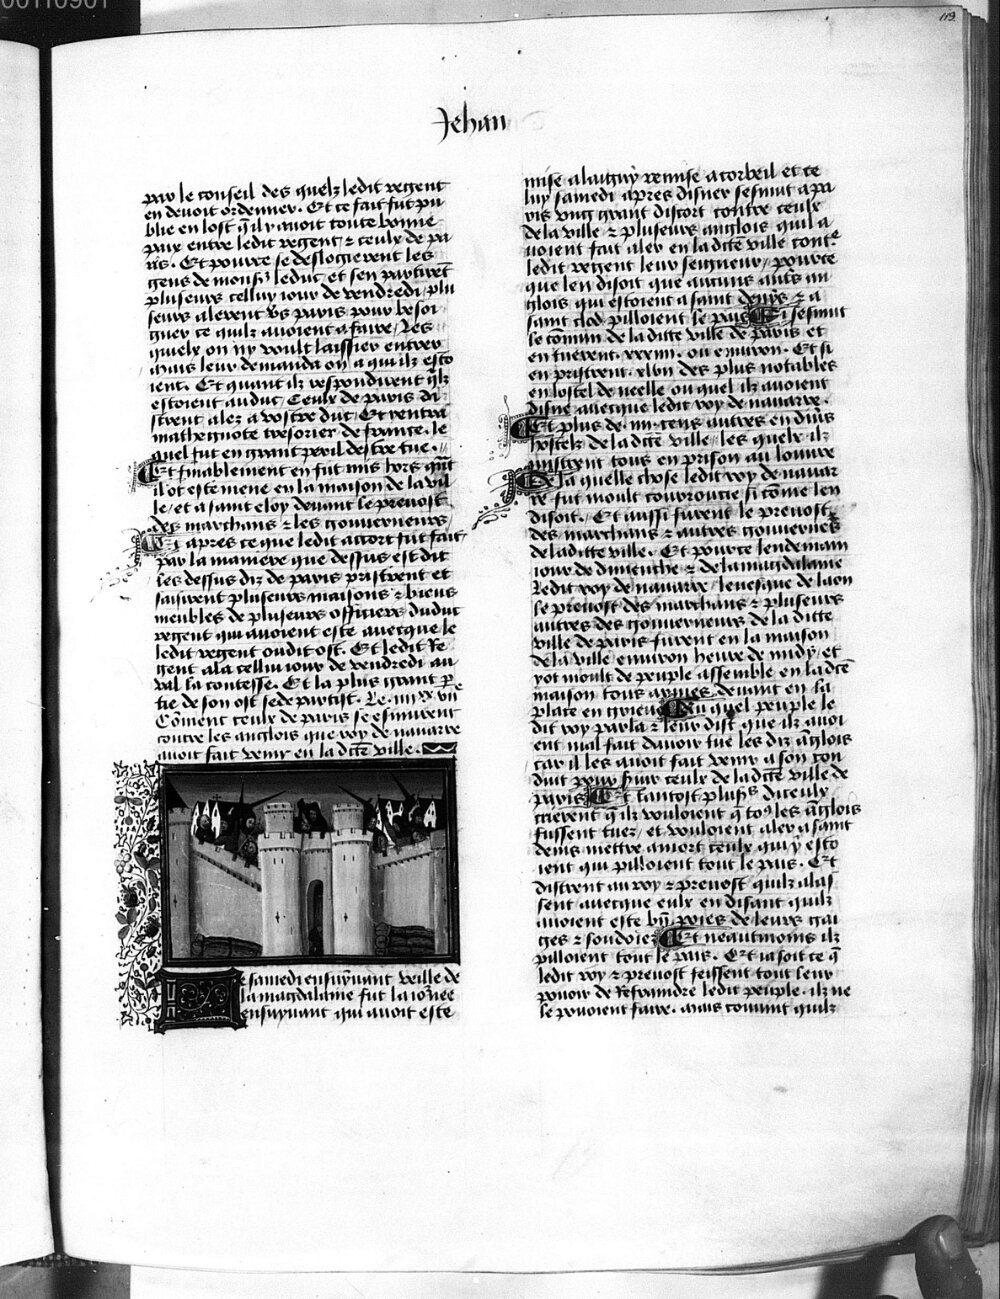 00110901
119
Jehan
par le conseil des quelz ledit regent
en devoit ordenner. Et ce fait fut pu
blie en lost q̄ il y auoit toute bonne
paix entre ledit regent ⁊ ceulx de pa
ris. Et pource se deslogierent les
gens de monsʳ le duc et sen partirēt
plusieurs celluy iour de vendredi, plu
seurs alerent vs̄ paris pour besoi
gner ce quilz auoient a faire, Les
quelx on ny voult laissier entrer
mais leur demanda on a qui ilz esto
ient. Et quant ilz respondirent q̄lz
estoient au duc, Ceulx de paris di
strent alez a vostre duc, Et rentra
mathe guote tresorier de france. le
quel fut en grant peril destre tue.
Et finablement en fut mis hors quāt
il ot este mene en la maison de la vil
le, et a saint eloy deuant le preuost
des marchans ⁊ les gouuerneurs,
Et apres ce que ledit accort fut fait
par la maniere que dessus est dit
les dessus diz de paris pristrent et
saisirent plusieurs maisons ⁊ biens
meubles de plusieurs officiers dudit
regent qui auoient este auecque le
ledit regent oudit ost. Et ledit Re
gent ala cellui iour de vendredi au
val la contesse. Et la plus grant p̄
tie de son ost se departist. Le. iiii xx vii
Cōment ceulx de paris se esmurent
contre les anglois que roy de nauarre
auoit fait venir en la dicte ville.
Le samedi ensuyuant veille de
la magdalaine fut la iōnee
ensuyuant qui auoit este
mise a laigny remise a corbeil et ce
luy samedi apres disner sesmut a pa
ris vng grant discort contre ceulx
de la ville ⁊ plusieurs anglois quil a
uoient fait aler en la dictē ville contͤ
ledit regent leur seigneur, pource
que len disoit que aucuns aut̄s an
glois qui estoient a saint denys ⁊ a
saint clod pilloient le pais Et sesmut
le cōmun de la ditte ville de paris et
en tuerent. xxxiiii. ou enuiron. Et si
en pristrent. xlvii des plus notables
en lostel de neelle ou quel ilz auoient
disne auecque ledit roy de nauarre.
Et plus de. iiii. cens autres en diūs
hostelz de la dictē ville, les quelx ilz
mistrent tous en prison au louure
De la quelle chose ledit roy de nauar
re fut moult courroucie si cōme len
disoit. Et aussi furent le preuost
des marchans ⁊ autres gouuerneͬs
de la ditte ville. Et pource lendemain
iour de dimenche ⁊ de la magdalaine
Ledit roy de nauarre, leuesque de laon
le preuost des marchans ⁊ plusieurs
autres des gouuerneurs de la ditte
ville de paris furent en la maison
de la ville enuiron heure de midy, et
yot moult de peuple assemble en la dctē
maison tous armes, deuant en la
place en grieue Au quel peuple le
dit roy parla ⁊ leur dist que ilz auoi
ent mal fait dauoir tue les diz āglois
car il les auoit fait venir a son con
duit pour seruir ceulx de la ditte ville de
paris Et tantost plusrs̄ diceulx
crierent q̄ ilz vouloient q̄ to9 les āglois
fussent tuez, et vouloient aler a saint
denis mettre a mort ceulx qui y esto
ient qui pilloient tout le pais. Et
distrent au roy ⁊ preuost quilz alas
sent auecque eulx en disant quilz
auoient este biē paies de leurs gai
ges ⁊ souldoiez Et neautmoins ilz
pilloient tout le pais. Et ia soit ce q̄
ledit roy ⁊ preuost feissent tout leur
pouoir de Refraindre ledit peuple. ilz ne
le pouoient faire. mais couuint quilz